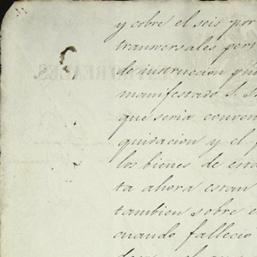 y cobre el seis por
tranversales por
de instruccion que
manifestado S. S.
que seria conven
quidacion y el p
los bienes de
ta ahora estan
tambien sobre e
cuando fallecio